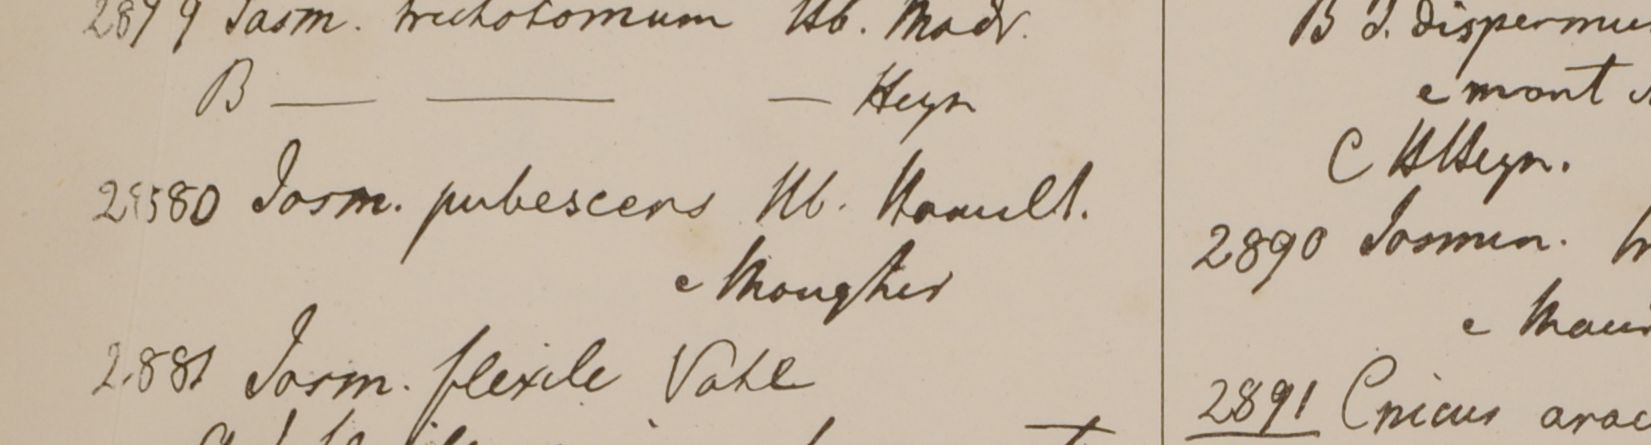 2879 Jasm. trichotomum Hb. Madr.
B — — — Heyn
2880 Jasm. pubescens Hb. Hamilt.
e Mongher
2881 Jasm. flexile Vahl
B J. dispermu
e mont
C HHeyn.
2890 Jasmin.
e Maur
2891 Cnicus arac